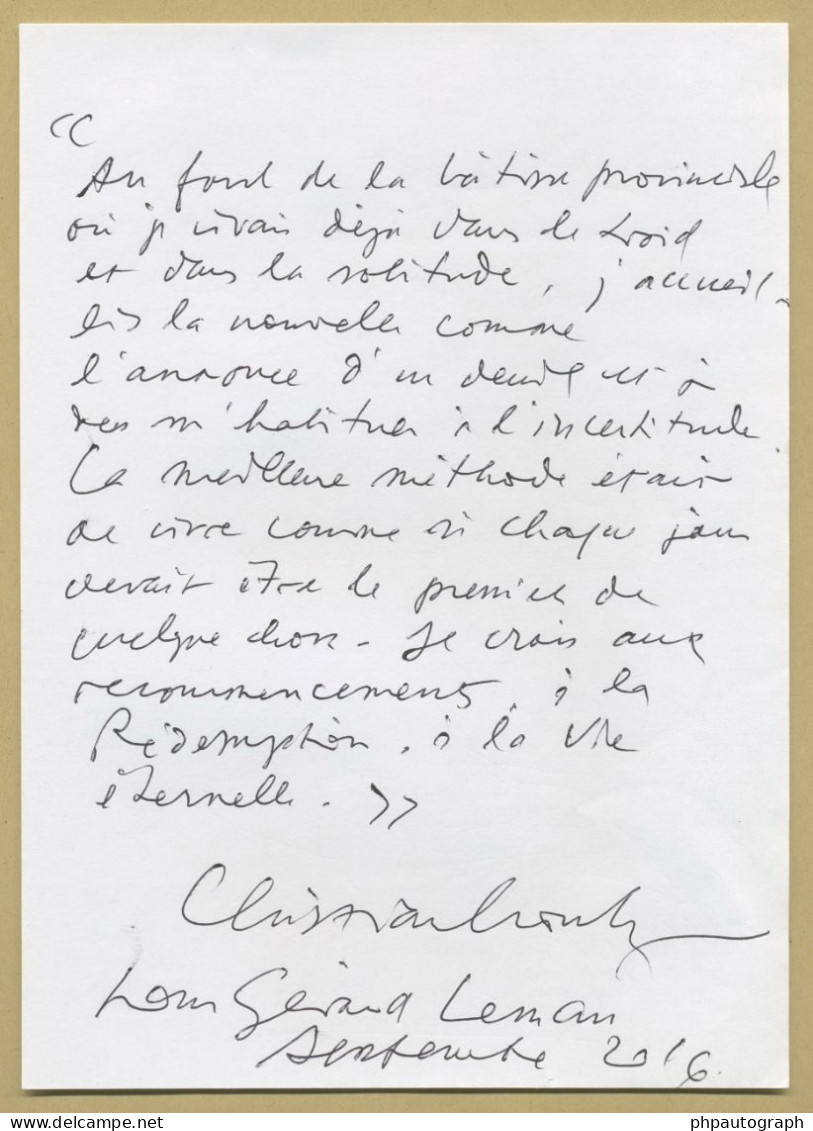 «
Au fond de la bâtisse provinciale
où je vivais déjà dans le froid
et dans la solitude, j'accueil-
lis la nouvelle comme
l'annonce d'un deuil et à
m'habituer à l'incertitude.
La meilleure méthode était
de vivre comme si chaque jour
devait être le premier de
quelque chose. Je crois aux
recommencements, à la
Rédemption, à la Vie
éternelle. »
Pour Gérard Leman
Septembre 2016.
delcampe.net
phpautograph